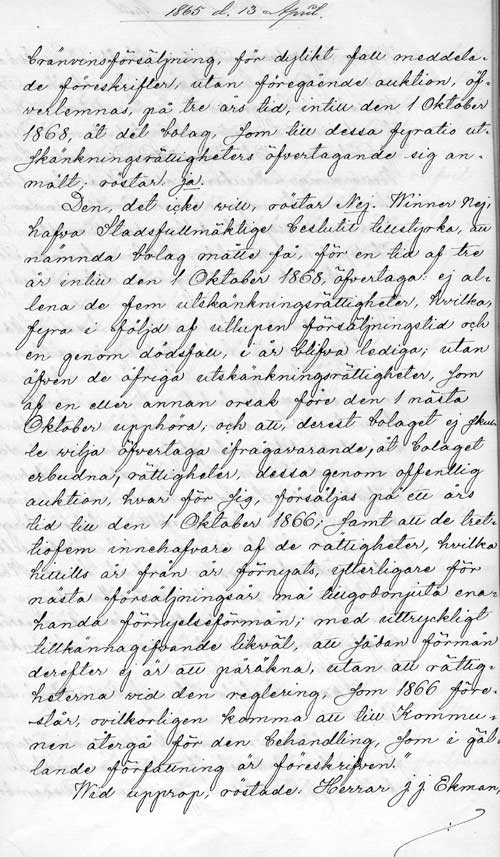 1865 d. 13 April.
bränvinsförsäljning, för dylikt fall meddela-
de föreskrifter, utan föregående auktion, öf-
verlemnas, på tre års tid, intill den 1 Oktober
1868, åt det bolag, som till dessa fyratio ut-
skänkningsrättigheters öfvertagande sig an-
mält; röstar ja.
Den, det icke vill, röstar Nej. Winner Nej,
hafva Stadsfullmäktige beslutit tillstyrka, att
nämnda bolag måtte få, för en tid af tre
år intill den 1 Oktober 1868, öfvertaga: ej al-
lena de fem utskänkningsrättigheter, hvilka,
fyra i följd af utlupen försäljningstid och
en genom dödsfall, i år blifva lediga; utan
äfven de öfriga utskänkningsrättigheter, som
af en eller annan orsak före den 1 nästa
Oktober upphöra; och att, derest bolaget ej skul-
le vilja öfvertaga ifrågavarande, åt bolaget
erbudna, rättigheter, dessa genom offentlig
auktion, hvar för sig, försäljas på ett års
tid till den 1 Oktober 1866; samt att de tret-
tiofem innehafvare af de rättigheter, hvilka
hittills år från år förnyats, ytterligare för
nästa försäljningsår må tillgodonjuta enar-
handa förnyelseförmån; med uttryckligt
tillkännagifvande likväl, att sådan förmån
derefter ej är att påräkna, utan att rättig-
heterna vid den reglering, som 1866 före-
står, ovilkorligen komma att till Kommu-
nen återgå för den behandling, som i gäl-
lande författning är föreskrifven."
Wid upprop, röstade: Herrar J J Ekman,